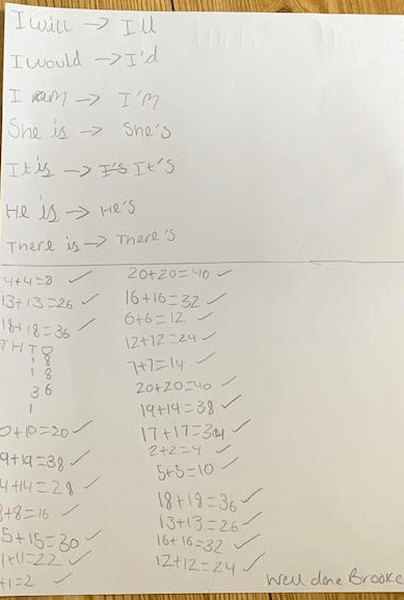 I will → I'll
I would → I'd
I am → I'm
She is → She's
It is → I's It's
He is → He's
There is → There's
4+4=8 ✓
13+13=26 ✓
18+18=36 ✓
TH T O
1 8
1 8
3 6
1
0+10=20 ✓
9+19=38 ✓
4+14=28 ✓
8+8=16 ✓
5+15=30 ✓
1+11=22 ✓
+1=2 ✓
20+20=40 ✓
16+16=32 ✓
6+6=12 ✓
12+12=24 ✓
7+7=14 ✓
20+20=40 ✓
19+19=38 ✓
17+17=34 ✓
2+2=4 ✓
5+5=10 ✓
18+18=36 ✓
13+13=26 ✓
16+16=32 ✓
12+12=24 ✓
Well done Brooke